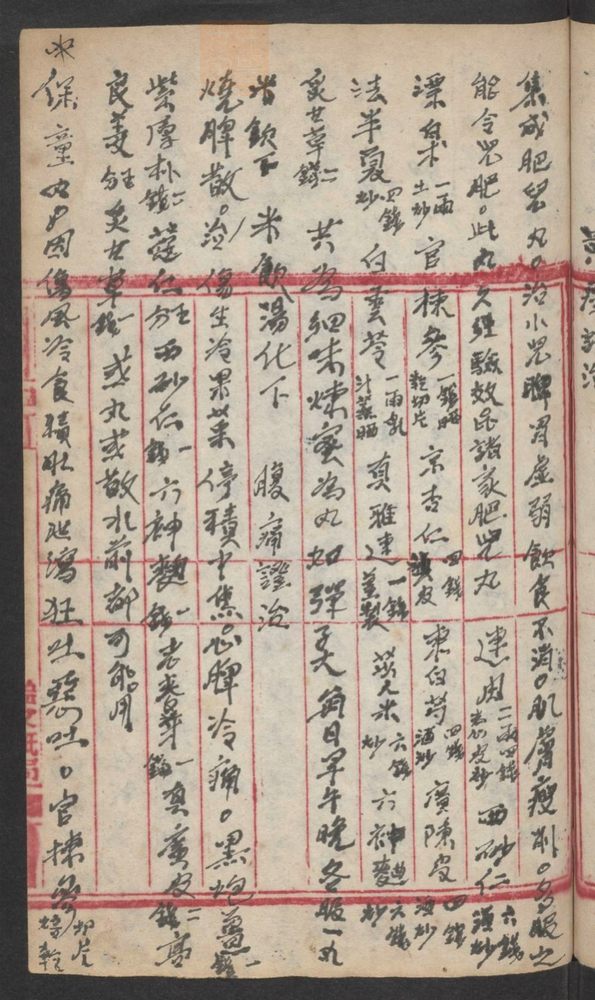 集成肥兒丸。治小兒脾胃虛弱飲食不消。肌膚瘦削。多服之
能令兒肥。此丸久經驗效各諸家肥兒丸 建 二兩四錢 西砂仁 六錢
漂白朮 一兩土炒 官揀參 一錢晒乾切片 京杏仁 四錢 東白芍 四錢酒炒 廣陳皮 四錢酒炒
法半夏 四錢炒 白雲苓 一兩乳汁蒸晒 真雅連 一錢薑製 苡米 六錢炒 六神麯 六錢炒
炙甘草 錢二 共為細末煉蜜為丸如彈子大每日早午晚各服一丸
米飲湯化下 腹痛證治
燒脾散。治傷生冷果菓停積中焦心脾冷痛。黑炮薑 錢一
紫厚朴 錢二 西砂仁 錢一 六神麯 錢一 老麥芽 錢一 真廣皮 錢二 高
良薑 炙甘草 錢一 或丸或散水煎都可能用
保童丸 因傷風冷食積肚痛泄瀉狂吐惡吐。官揀參 切片焙乾